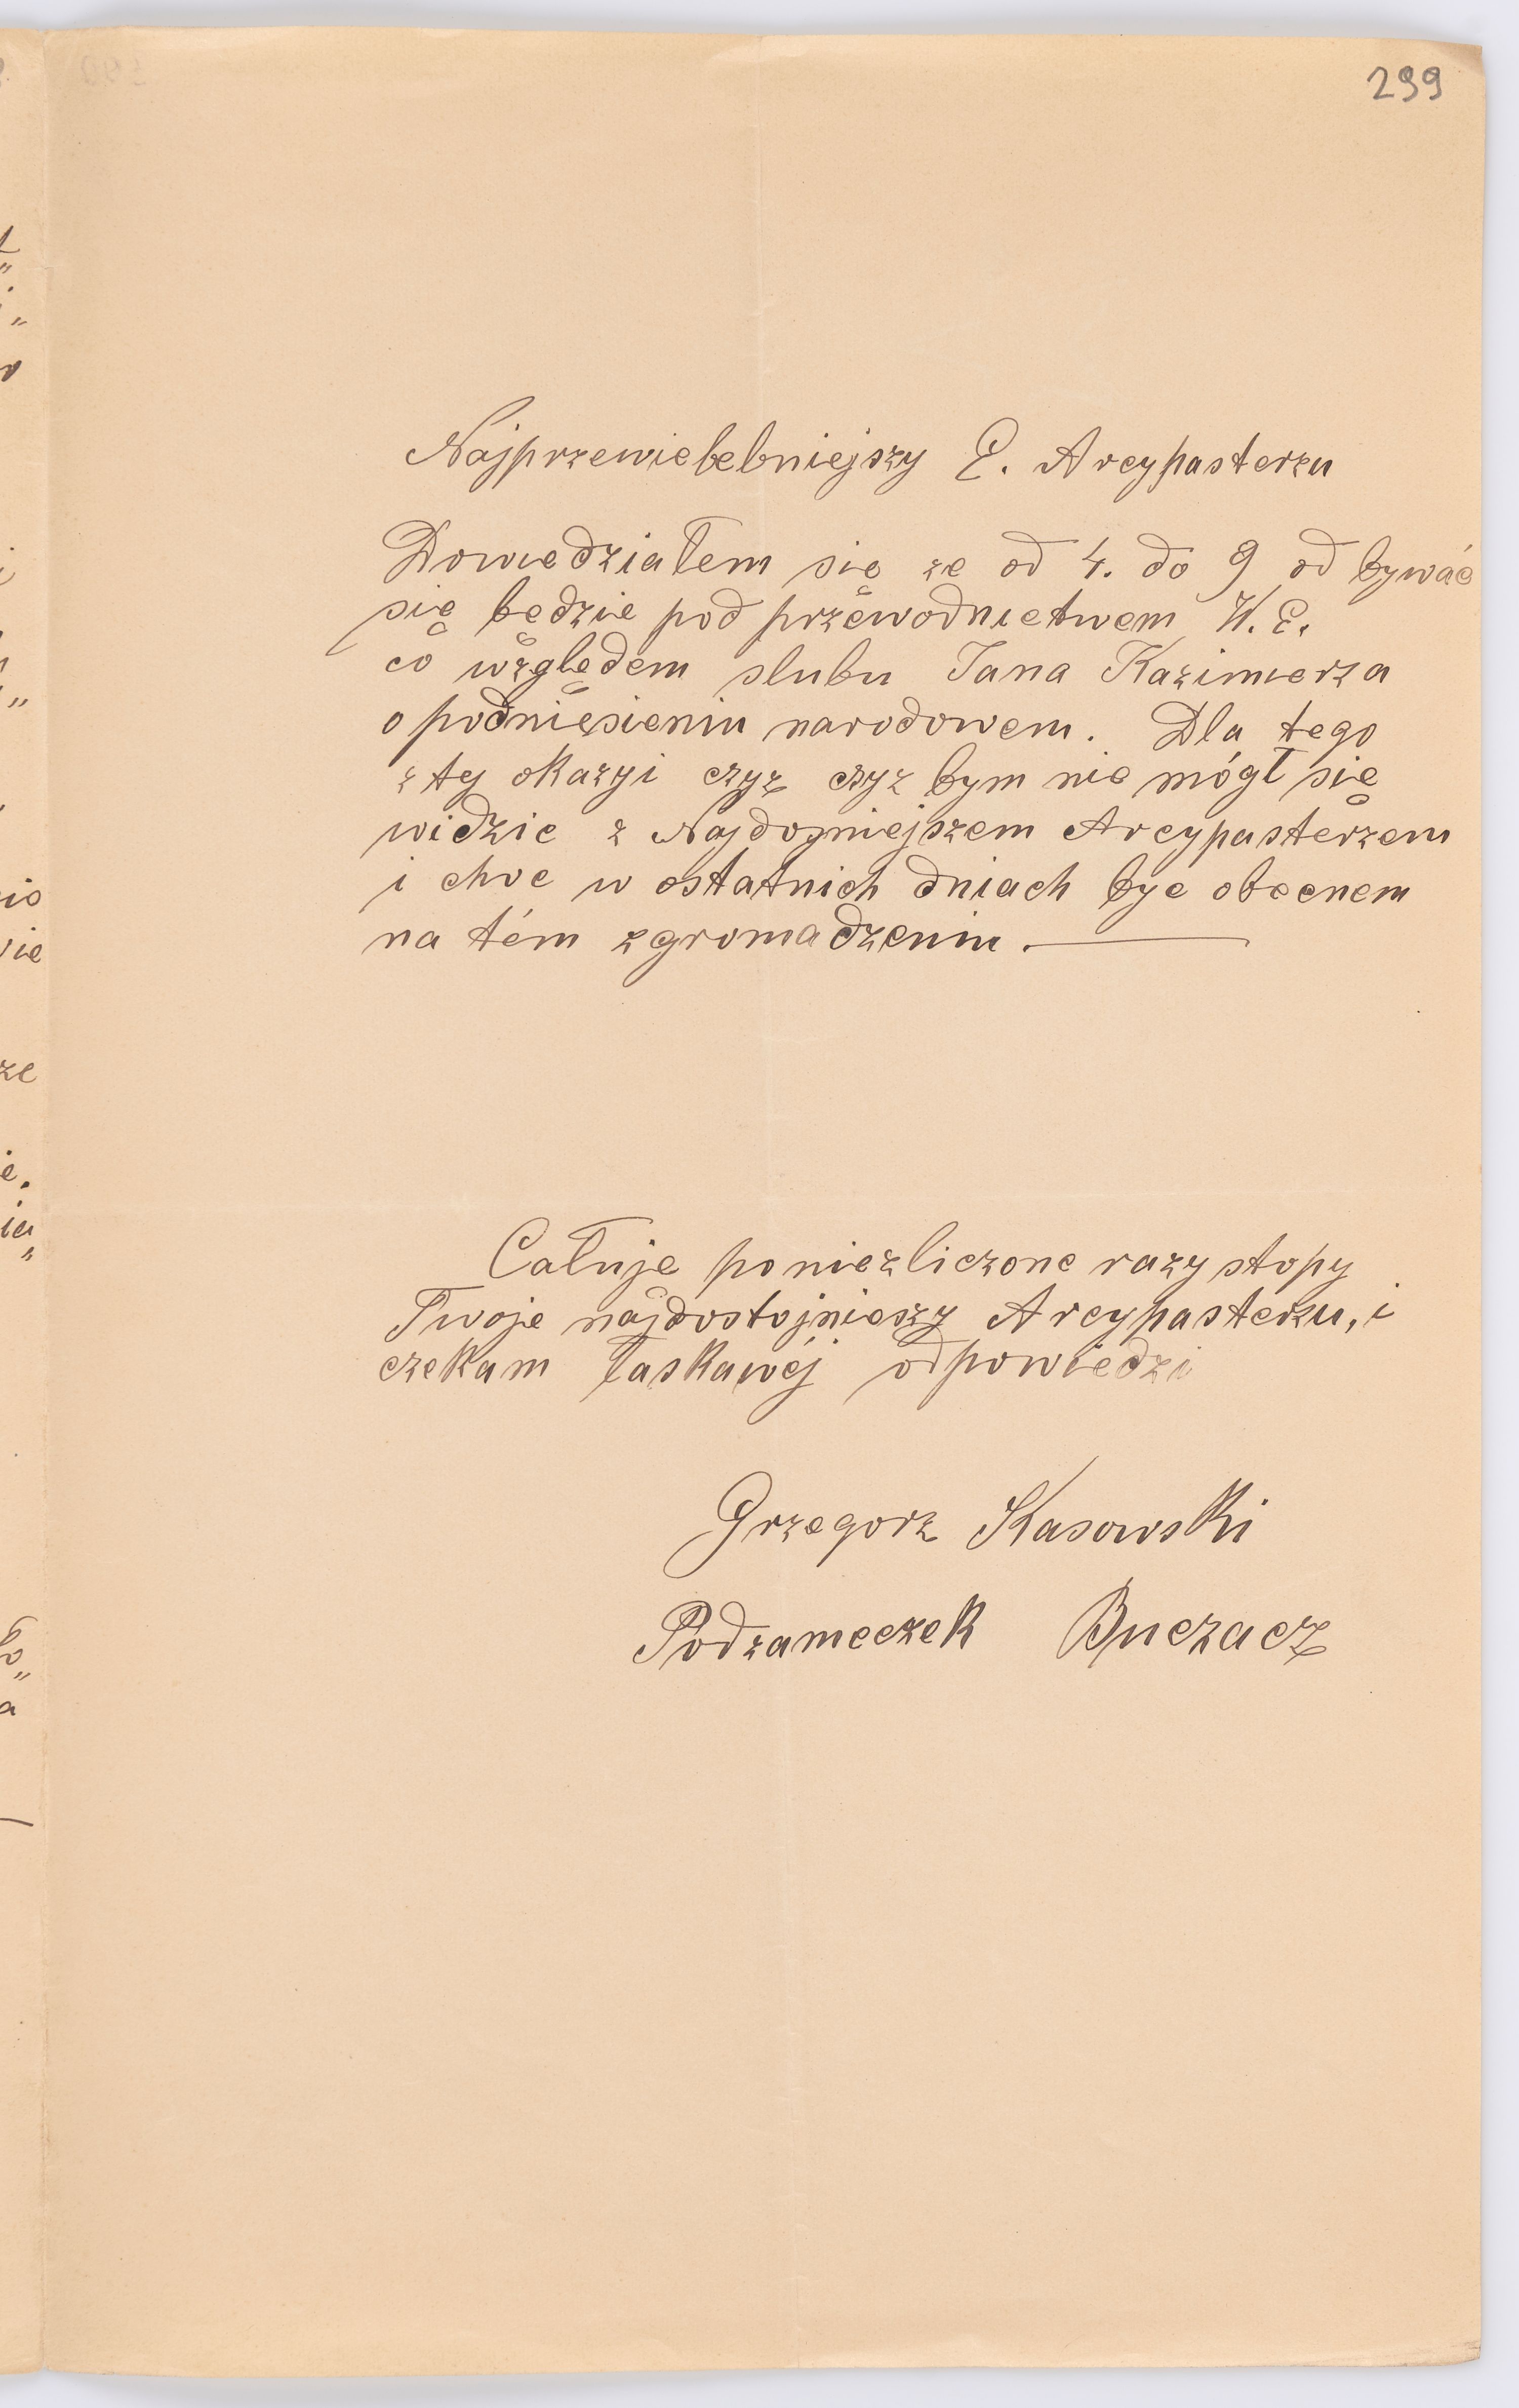 299
Najprzewiebebniejszy E. Arcypasterzu
Dowiedziałem się ze od 4. do 9 od bywać
się będzie pod przewodnictwem W. E.
co względem slubu Jana Kazimierza
o podniesieniu narodowem. Dla tego
z tej okazyi czyz czyz bym nie mógł się
widzic z Najdojniejszem Arcypasterzem
i chce w ostatnich dniach byc obecnem
na tém zgromadzeniu.
Całuję poniezliczone razy stopy
Twoje najdostojnieszy Arcypasterzu, i
czekam łaskawéj odpowiedzi
Grzegorz Kasowski
Podzameczek Buczacz